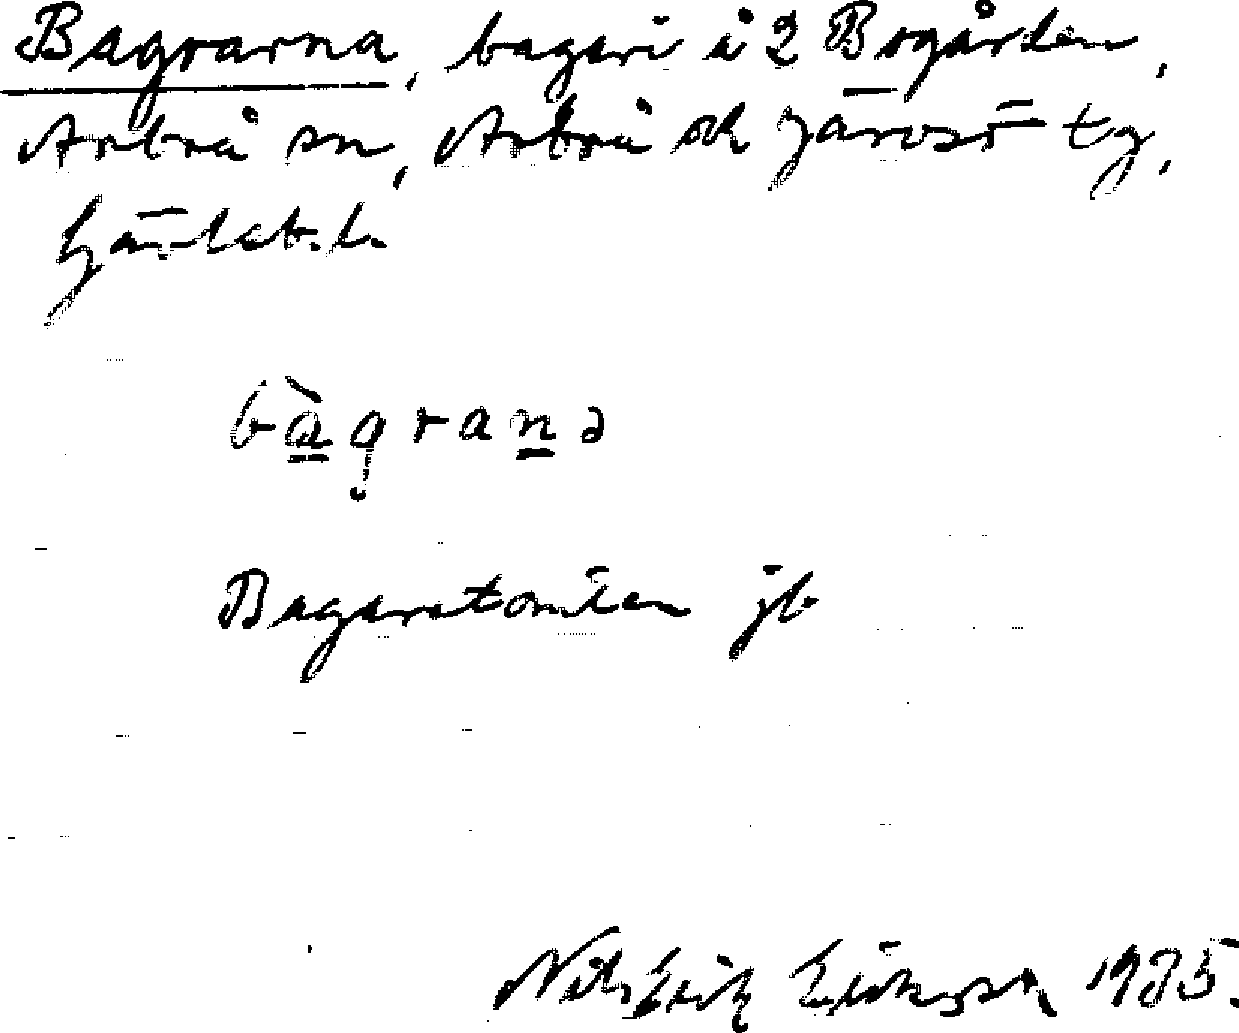 Bagrarna, bageri å 2 Bogården,
Arbrå sn, Arbrå och Järvsö tg,
Gävleb. l.
bàgranə
Bageretomten jb
Nils Erik Eriksson 1935.